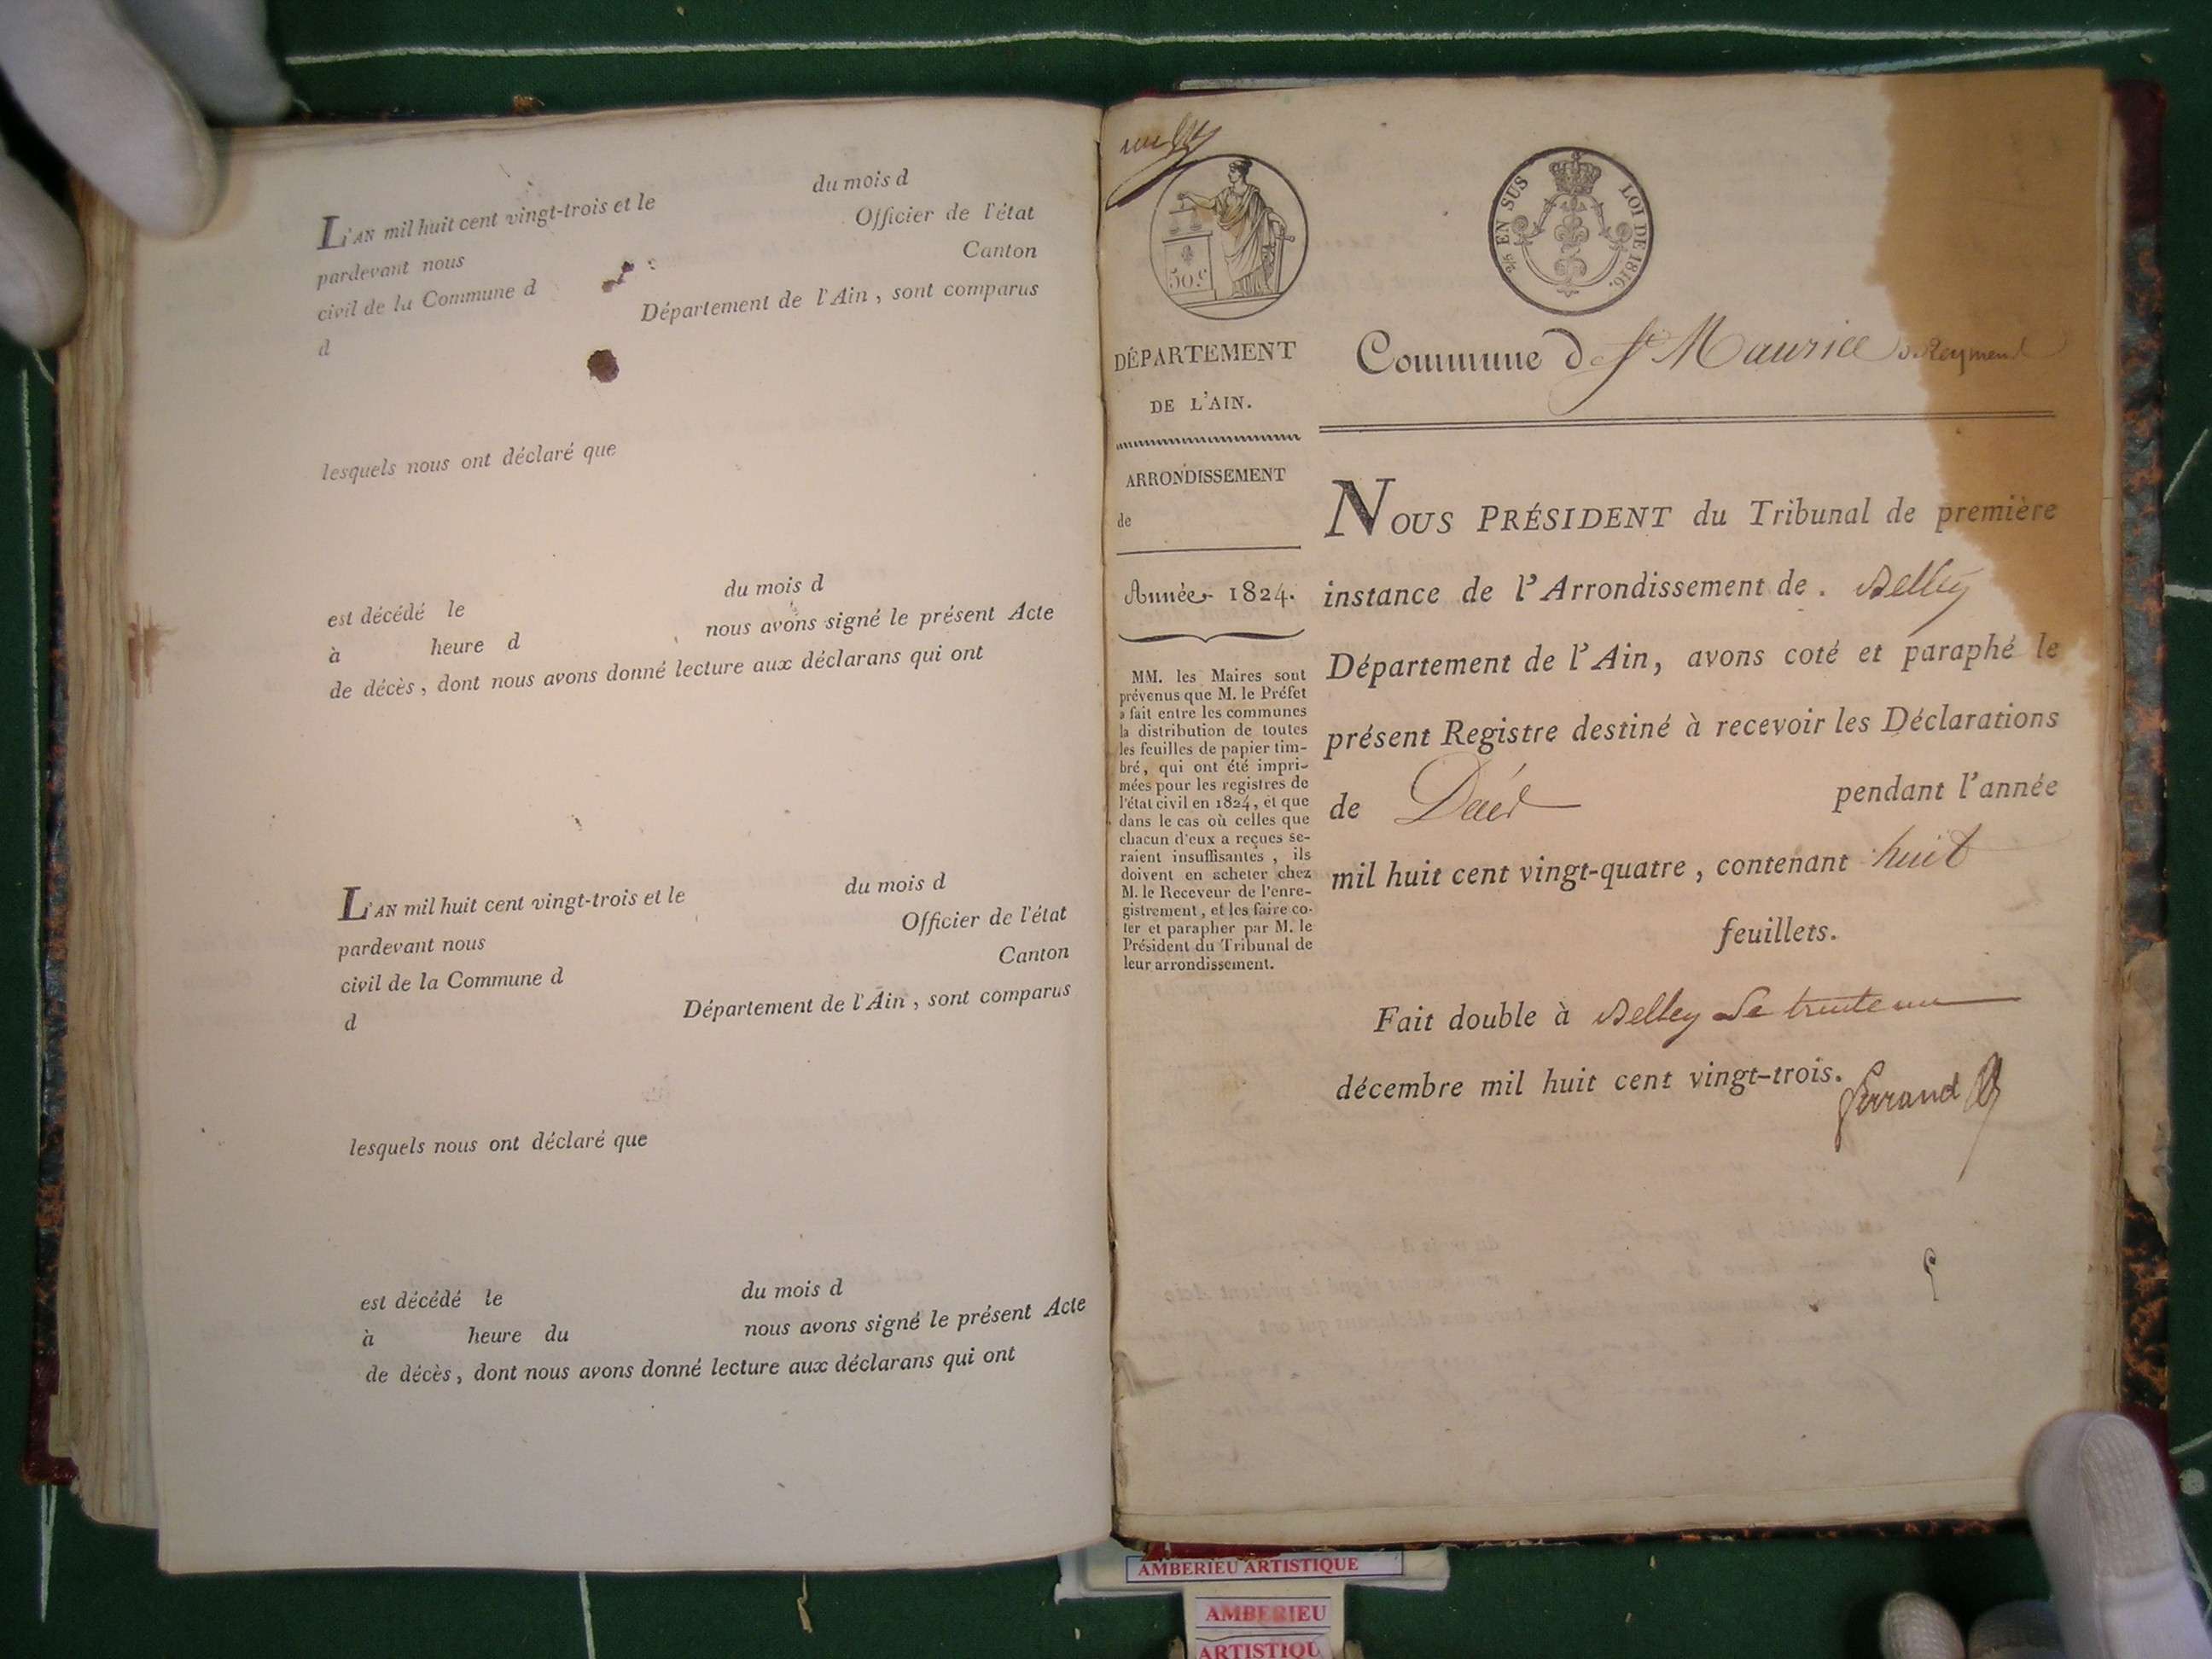 L'AN mil huit cent vingt-trois et le du mois d
pardevant nous Officier de l'état
civil de la Commune d Canton
d Département de l'Ain, sont comparus
lesquels nous ont déclaré que
est décédé le du mois d
à heure d nous avons signé le présent Acte
de décès, dont nous avons donné lecture aux déclarans qui ont
L'AN mil huit cent vingt-trois et le du mois d
pardevant nous Officier de l'état
civil de la Commune d Canton
d Département de l'Ain, sont comparus
lesquels nous ont déclaré que
est décédé le du mois d
à heure du nous avons signé le présent Acte
de décès, dont nous avons donné lecture aux déclarans qui ont
50.c
EN SUS LOI DE 1816.
DÉPARTEMENT
DE L'AIN.
ARRONDISSEMENT
de
Année 1824.
MM. les Maires sont
prévenus que M. le Préfet
a fait entre les communes
la distribution de toutes
les feuilles de papier tim-
bré, qui ont été impri-
mées pour les registres de
l'état civil en 1824, et que
dans le cas où celles que
chacun d'eux a reçues se-
raient insuffisantes, ils
doivent en acheter chez
M. le Receveur de l'enre-
gistrement, et les faire co-
ter et parapher par M. le
Président du Tribunal de
leur arrondissement.
Commune de St Maurice de Reymens
NOUS PRÉSIDENT du Tribunal de première
instance de l'Arrondissement de. Belley
Département de l'Ain, avons coté et paraphé le
présent Registre destiné à recevoir les Déclarations
de Décès pendant l'année
mil huit cent vingt-quatre, contenant huit
feuillets.
Fait double à Belley Le trente un
décembre mil huit cent vingt-trois.
AMBERIEU ARTISTIQUE
AMBERIEU
ARTISTIQU